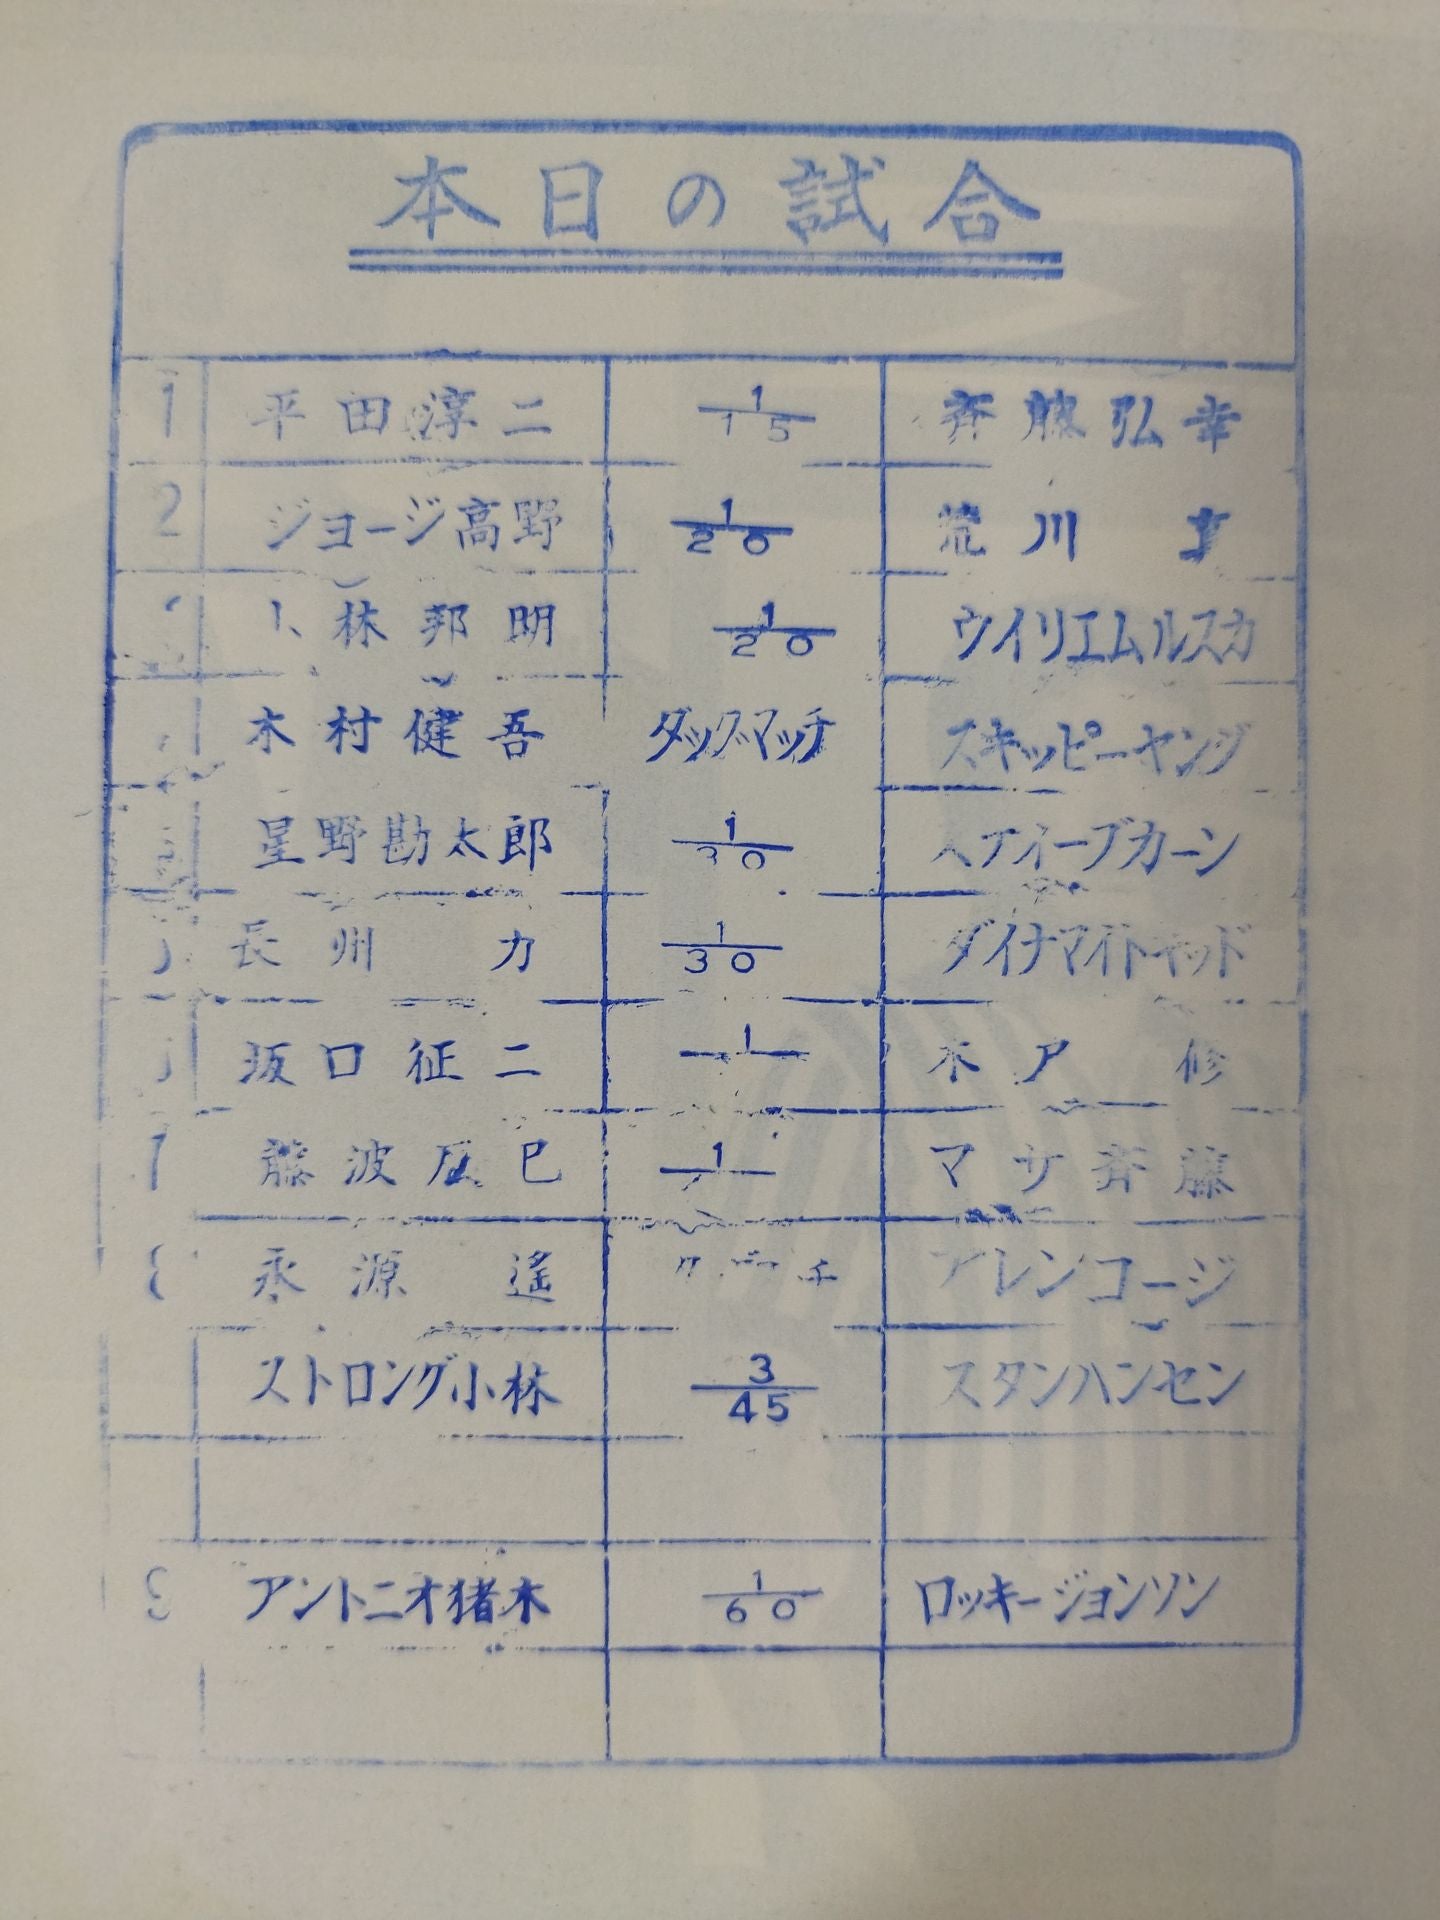 本日の試合
1 平田淳二 1/15 斉藤弘幸
2 ジョージ高野 1/20 荒川
林邦明 1/20 ウイリエムルスカ
木村健吾 タッグマッチ スキッピーヤング
星野勘太郎 1/30 ベアイーブカーン
長州 力 1/30 ダイナマイトキッド
坂口征二 1 木 ア 修
藤波辰巳 1 マサ斉藤
永源 遙 チ アレンコージ
ストロング小林 3/45 スタンハンセン
アントニオ猪木 1/60 ロッキージョンソン